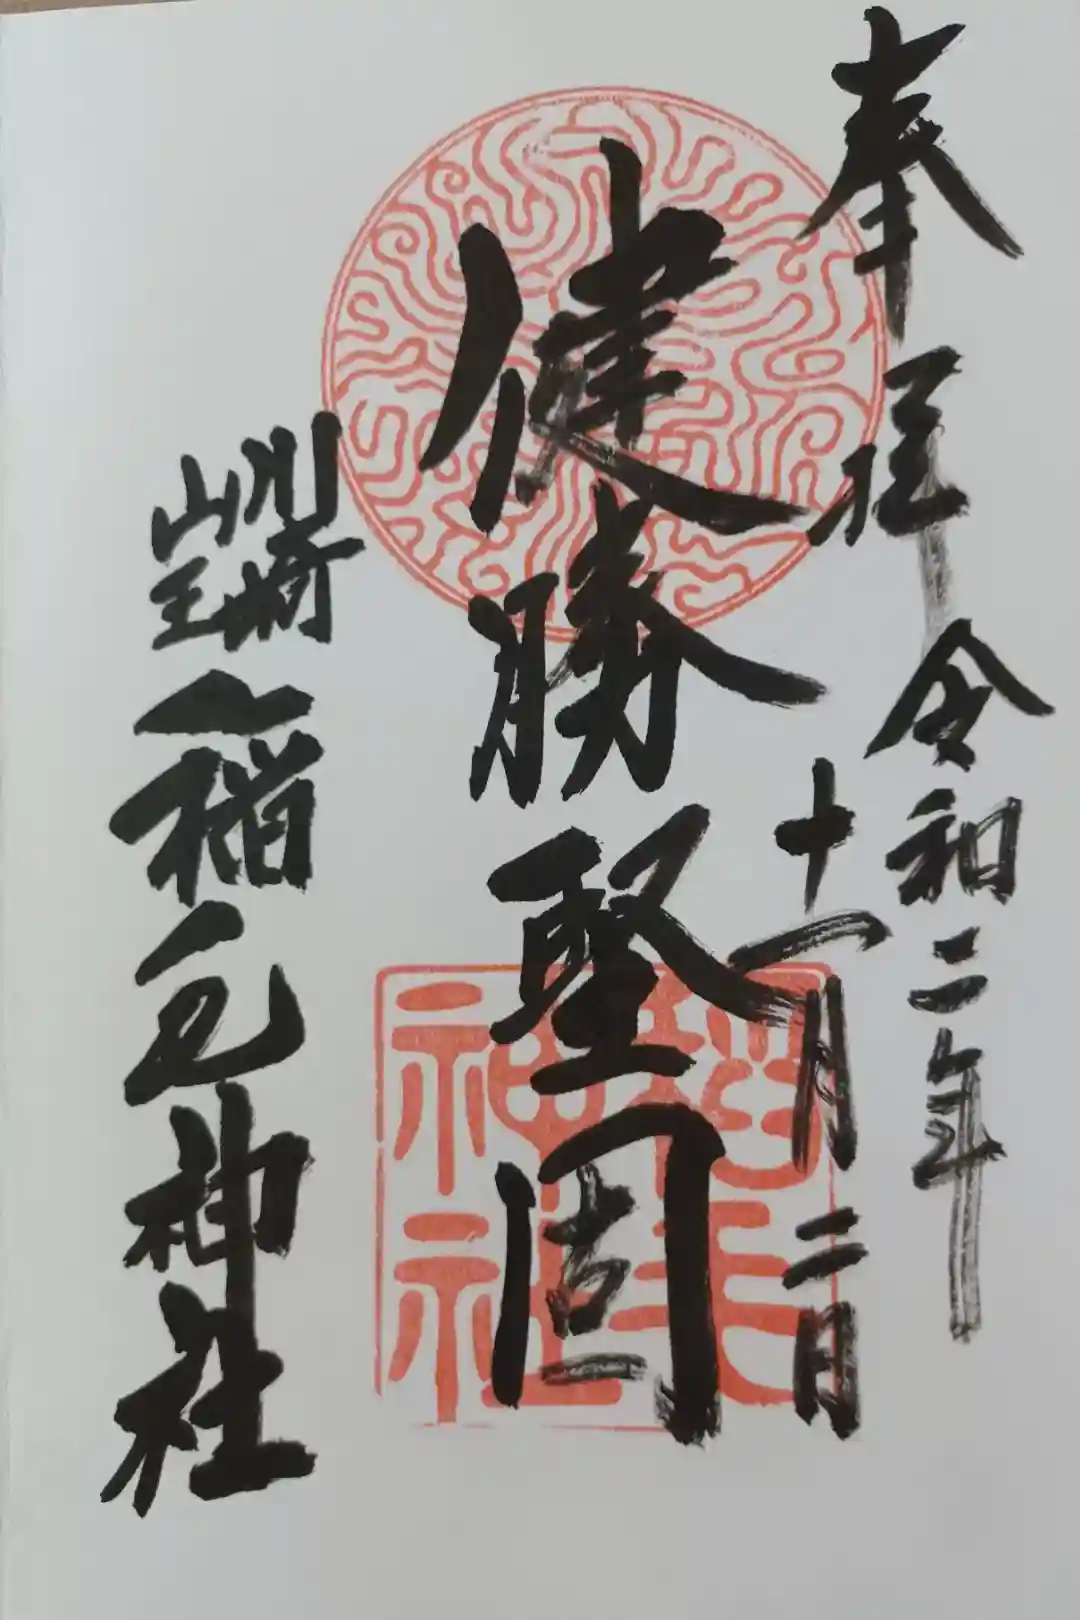 奉拝
令和二年
十一月二日
健勝堅固
川崎
山王
稲毛神社
稲毛
神社